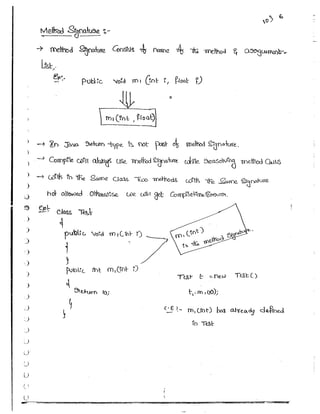 103 6
Method Signature :-
→ method Signature Consist of name of the method & arguments-
list.
Ex:- public void m1 (int i, float f)
m1(int, float)
→ In Java return type is not part of method Signature.
→ Compiler will always use method signature while resolving method calls
→ with in the Same Class Two methods with the Same Signature
not allowed otherwise we will get CompileTimeError.
Ex:- class Test
{
public void m1(int i)
{
}
m1(int)
is the method signature
public int m1(int i)
{
return 10;
}
}
Test t = new Test()
t.m1(10);
C.E :- m1(int) has already defined
in Test